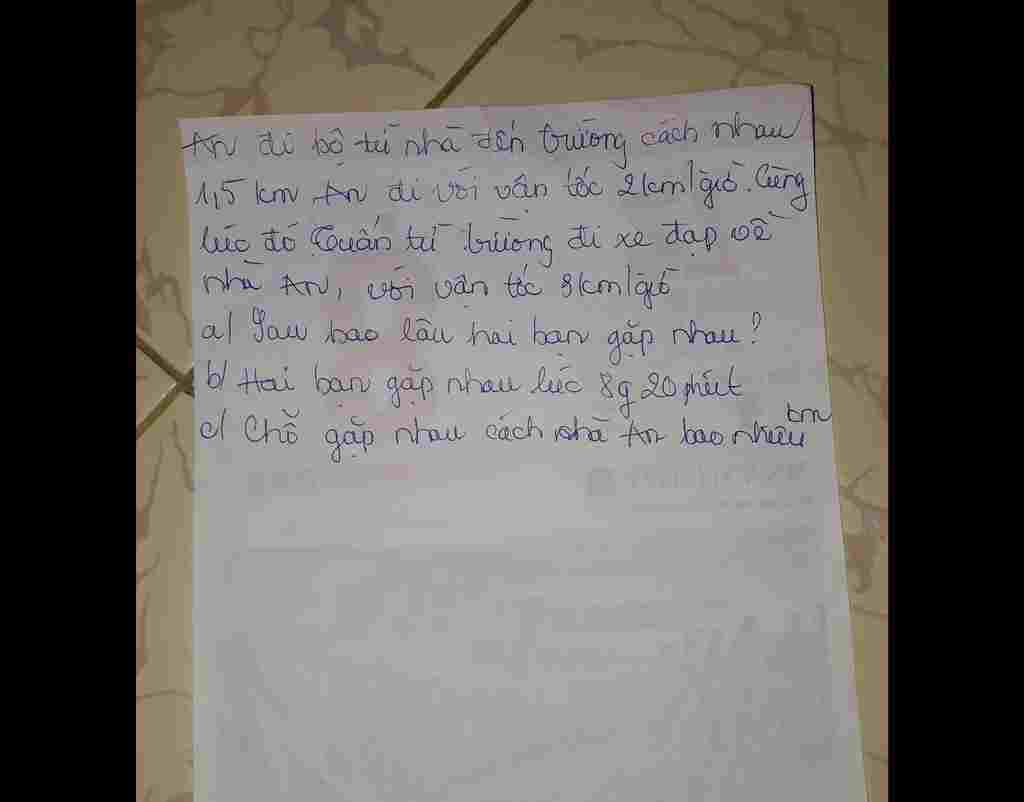 An đi bộ từ nhà đến trường cách nhau
1,5 km An đi với vận tốc 2km/giờ. Cùng
lúc đó Quấn từ trường đi xe đạp về
nhà An, với vận tốc 8km/giờ
a/ Sau bao lâu hai bạn gặp nhau?
b/ Hai bạn gặp nhau lúc 8g 20 phút
c/ Chỗ gặp nhau cách nhà An bao nhiêu km